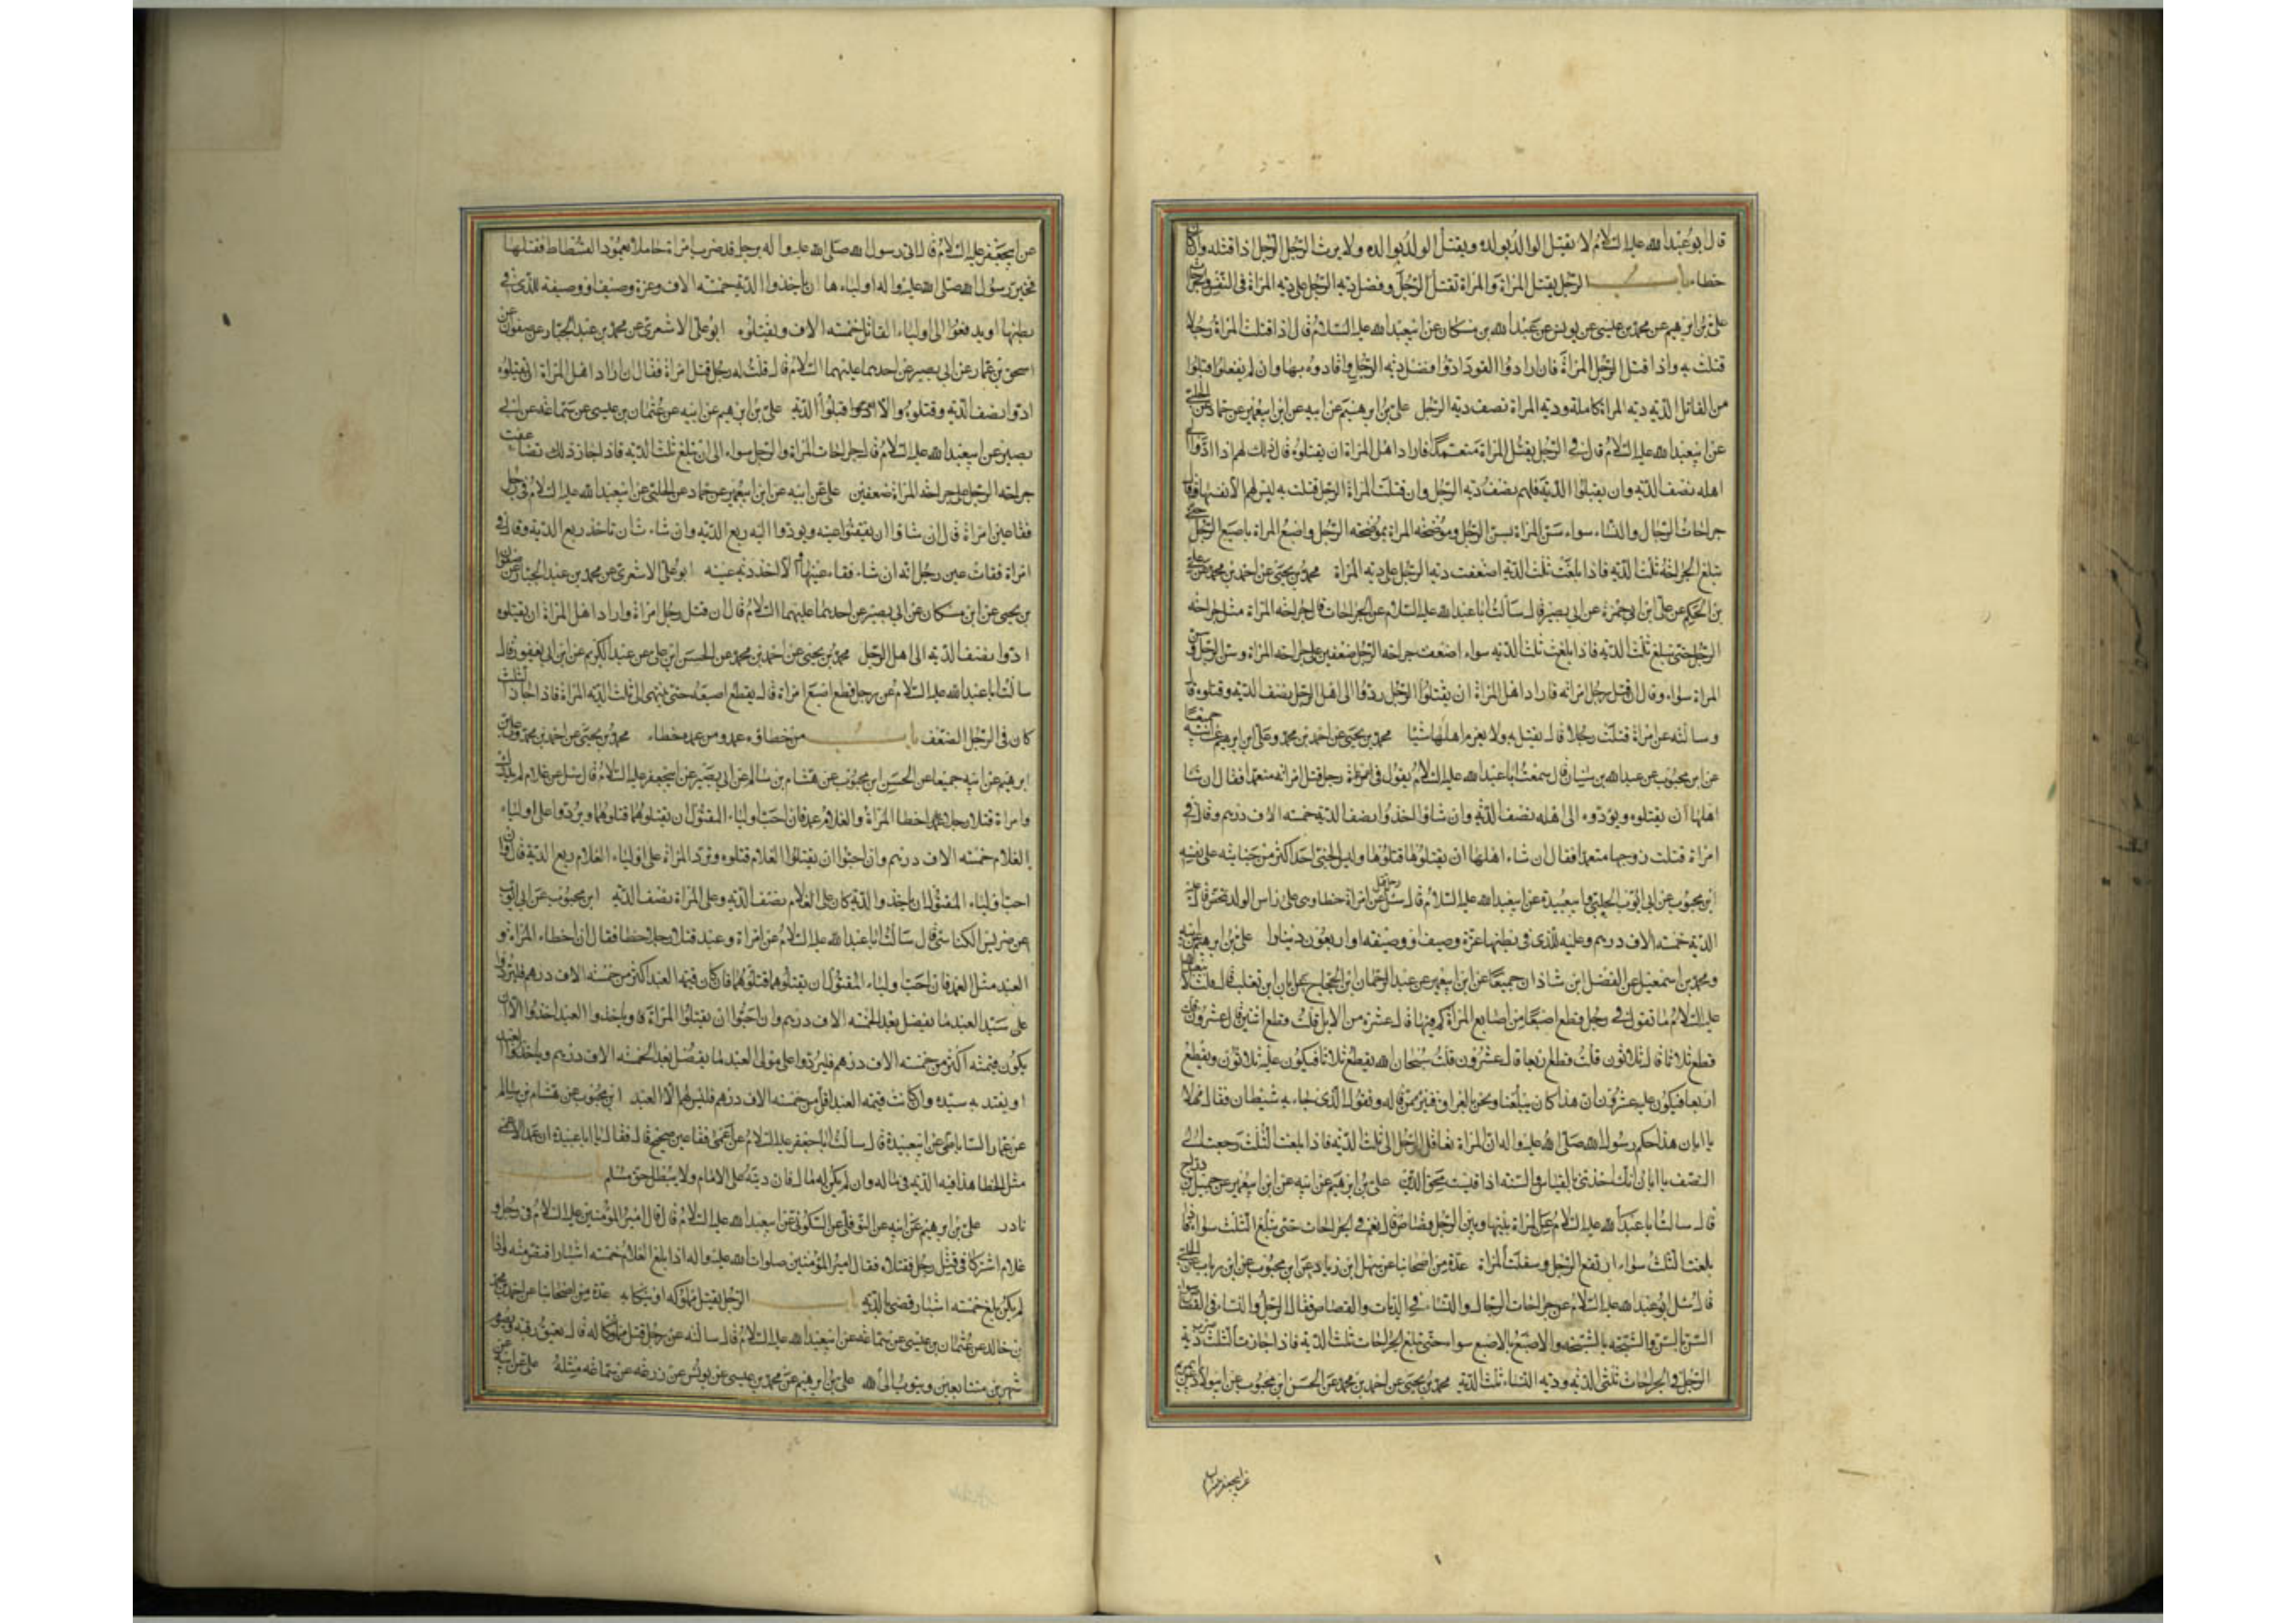 قال ابو عبد الله عليه السلام لا يقتل الوالد بولده ويقتل الولد بوالده ولا يرث الرجل الرجل اذا قتله وان كان
خطاء باب الرجل يقتل المراة والمراة تقتل الرجل وفضل دية الرجل على دية المراة في النفس والجراحات
علي بن ابرهيم عن محمد بن عيسى عن يونس عن عبد الله بن مسكان عن ابي عبد الله عليه السلام قال اذا قتلت المراة رجلا
قتلت به واذا قتل الرجل المراة فان ارادوا القود ادوا فضل دية الرجل واقادوه بها وان لم يفعلوا قبلوا
من القاتل الدية دية المراة كاملة ودية المراة نصف دية الرجل علي بن ابرهيم عن ابيه عن ابن ابي عمير عن حماد عن الحلبي
عن ابي عبد الله عليه السلام قال في الرجل يقتل المراة متعمدا فاراد اهل المراة ان يقتلوه قال ذلك لهم اذا ادوا الى
اهله نصف الدية وان يقبلوا الدية فلهم نصف دية الرجل وان قتلت المراة الرجل قتلت به ليس لهم الا نفسها وقال
جراحات الرجال والنساء سواء سن المراة بسن الرجل وموضحة المراة بموضحة الرجل واصبع المراة باصبع الرجل حتى
تبلغ الجراحة ثلث الدية فاذا بلغت ثلث الدية اضعفت دية الرجل على دية المراة محمد بن يحيى عن احمد بن محمد عن علي
بن الحكم عن علي ابن ابي حمزة عن ابي بصير قال سالت ابا عبد الله عليه السلام عن الجراحات قال جراحة المراة مثل جراحة
الرجل حتى تبلغ ثلث الدية فاذا بلغت ثلث الدية سواء اضعفت جراحة الرجل ضعفين على جراحة المراة وسن الرجل وسن
المراة سواء وقال ان قتل رجل امراته فاراد اهل المراة ان يقتلوا الرجل ردوا الى اهل الرجل نصف الدية وقتلوه قال
وسالته عن امراة قتلت رجلا قال تقتل به ولا يغرم اهلها شيئا محمد بن يحيى عن احمد بن محمد وعلي ابن ابرهيم عن ابيه جميعا
عن ابن محبوب عن عبد الله بن سنان قال سمعت ابا عبد الله عليه السلام يقول في رجل قتل امراته متعمدا فقال ان شاء
اهلها ان يقتلوه ويؤدوه الى اهله نصف الدية وان شاؤا اخذوا نصف الدية خمسة الاف درهم وقال في
امراة قتلت زوجها متعمدا فقال ان شاء اهلها ان يقتلوها قتلوها وليس يجني احد اكثر من جنايته على نفسه
ابن محبوب عن ابي ايوب الحلبي وابي عبيدة عن ابي عبد الله عليه السلام قال سئل عن رجل قتل امراة خطا وهي على راس الولد تمخض قال عليه
الدية خمسة الاف درهم وعليه للذي في بطنها غرة وصيف او وصيفة او اربعون دينارا علي بن ابرهيم عن ابيه
ومحمد بن اسمعيل عن الفضل ابن شاذان جميعا عن ابن ابي عمير عن عبد الرحمان ابن الحجاج عن ابان ابن تغلب قال قلت لابي عبد الله
عليه السلام ما تقول في رجل قطع اصبعا من اصابع المراة كم فيها قال عشرة من الابل قلت قطع اثنين قال عشرون قلت
قطع ثلاثا قال ثلاثون قلت قطع اربعا قال عشرون قلت سبحان الله يقطع ثلاثا فيكون عليه ثلاثون ويقطع
اربعا فيكون عليه عشرون ان هذا كان يبلغنا ونحن بالعراق فنبرء ممن قاله ونقول الذي جاء به شيطان فقال مهلا
يا ابان هذا حكم رسول الله صلى الله عليه واله ان المراة تعاقل الرجل الى ثلث الدية فاذا بلغت الثلث رجعت الى
النصف يا ابان انك اخذتني بالقياس والسنة اذا قيست محق الدين علي بن ابرهيم عن ابيه عن ابن ابي عمير عن جميل بن دراج
قال سالت ابا عبد الله عليه السلام عن المراة بينها وبين الرجل قصاص قال نعم في الجراحات حتى تبلغ الثلث سواء فاذا
بلغت الثلث سواء ارتفع الرجل وسفلت المراة عدة من اصحابنا عن سهل ابن زياد عن ابن محبوب عن ابن رياب عن الحلبي
قال سئل ابو عبد الله عليه السلام عن جراحات الرجال والنساء في الديات والقصاص فقال الرجال والنساء في القصاص سواء
السن بالسن والشجة بالشجة والاصبع بالاصبع سواء حتى تبلغ الجراحات ثلث الدية فاذا جازت الثلث صير دية
الرجل في الجراحات ثلثي الدية ودية النساء ثلث الدية محمد بن يحيى عن احمد بن محمد عن الحسن ابن محبوب عن ابي ولاد عن ابي مريم
عن ابي جعفر
عن ابي جعفر عليه السلام قال اتي رسول الله صلى الله عليه واله برجل قد ضرب امراة حاملا بعمود الفسطاط فقتلها
فخير رسول الله صلى الله عليه واله اولياءها ان ياخذوا الدية خمسة الاف وغرة وصيف او وصيفة للذي في
بطنها او يدفعوا الى اولياء القاتل خمسة الاف ويقتلوه ابو علي الاشعري عن محمد بن عبد الجبار عن صفوان عن
اسحق بن عمار عن ابي بصير عن احدهما عليهما السلام قال قلت له رجل قتل امراة فقال ان اراد اهل المراة ان يقتلوه
ادوا نصف الدية وقتلوه والا قبلوا الدية علي بن ابرهيم عن ابيه عن عثمان بن عيسى عن سماعة عن ابي
بصير عن ابي عبد الله عليه السلام قال جراحات المراة والرجل سواء الى ان تبلغ ثلث الدية فاذا جاز ذلك تضاعفت
جراحة الرجل على جراحة المراة ضعفين علي عن ابيه عن ابن ابي عمير عن حماد عن الحلبي عن ابي عبد الله عليه السلام في رجل
فقا عين امراة قال ان شاؤا ان يفقئوا عينه ويودوا اليه ربع الدية وان شاءت ان تاخذ ربع الدية وقال في
امراة فقات عين رجل انه ان شاء فقاء عينها والا اخذ دية عينه ابو علي الاشعري عن محمد بن عبد الجبار عن صفوان
بن يحيى عن ابن مسكان عن ابي بصير عن احدهما عليهما السلام قال ان قتل رجل امراة واراد اهل المراة ان يقتلوه
ادوا نصف الدية الى اهل الرجل محمد بن يحيى عن احمد بن محمد عن الحسن ابن علي عن عبد الكريم عن ابن ابي يعفور قال
سالت ابا عبد الله عليه السلام عن رجل قطع اصبع امراة قال يقطع اصبعه حتى ينتهي الى ثلث الدية المراة فاذا جاز الثلث
كان في الرجل الضعف باب من خطاؤه عمد ومن عمده خطاء محمد بن يحيى عن احمد بن محمد وعلي بن
ابرهيم عن ابيه جميعا عن الحسن ابن محبوب عن هشام بن سالم عن ابي بصير عن ابي جعفر عليه السلام قال سئل عن غلام لم يدرك
وامراة قتلا رجلا خطا المراة والغلام عمد فان احب اولياء المقتول ان يقتلوهما قتلوهما ويردوا على اولياء
الغلام خمسة الاف درهم وان احبوا ان يقتلوا الغلام قتلوه وترد المراة على اولياء الغلام ربع الدية قال وان
احب اولياء المقتول ان ياخذوا الدية كان على الغلام نصف الدية وعلى المراة نصف الدية ابن محبوب عن ابي ايوب
عن ضريس الكناسي قال سالت ابا عبد الله عليه السلام عن امراة وعبد قتلا رجلا خطا فقال ان خطاء المراة و
العبد مثل العمد فان احب اولياء المقتول ان يقتلوهما قتلوهما فان كان قيمة العبد اكثر من خمسة الاف درهم فليردوا
على سيد العبد ما يفضل بعد الخمسة الاف درهم وان احبوا ان يقتلوا المراة وياخذوا العبد اخذوا الا ان
يكون قيمته اكثر من خمسة الاف درهم فليردوا على مولى العبد ما يفضل بعد الخمسة الاف درهم وياخذوا العبد
او يفتديه سيده وان كانت قيمة العبد اقل من خمسة الاف درهم فليس لهم الا العبد ابن محبوب عن هشام بن سالم
عن عمار الساباطي عن ابي عبيدة قال سالت ابا جعفر عليه السلام عن اعمى فقا عين صحيح قال فقال يا ابا عبيدة ان عمد الاعمى
مثل الخطا هذا فيه الدية في ماله وان لم يكن له مال فان دية على الامام ولا يبطل حق مسلم باب
نادر علي بن ابرهيم عن ابيه عن النوفلي عن السكوني عن ابي عبد الله عليه السلام قال قال امير المؤمنين عليه السلام في رجل و
غلام اشتركا في قتل رجل فقتلاه فقال امير المؤمنين صلوات الله عليه واله اذا بلغ الغلام خمسة اشبار اقتص منه واذا
لم يكن بلغ خمسة اشبار قضى بالدية باب الرجل يقتل مملوكه او ينكل به عدة من اصحابنا عن احمد بن محمد
بن خالد عن عثمان بن عيسى عن سماعة عن ابي عبد الله عليه السلام قال سالته عن رجل قتل مملوكا له قال يعتق رقبة ويصوم
شهرين متتابعين ويتوب الى الله علي بن ابرهيم عن محمد بن عيسى عن يونس عن زرعة عن سماعة مثله علي عن ابيه عن